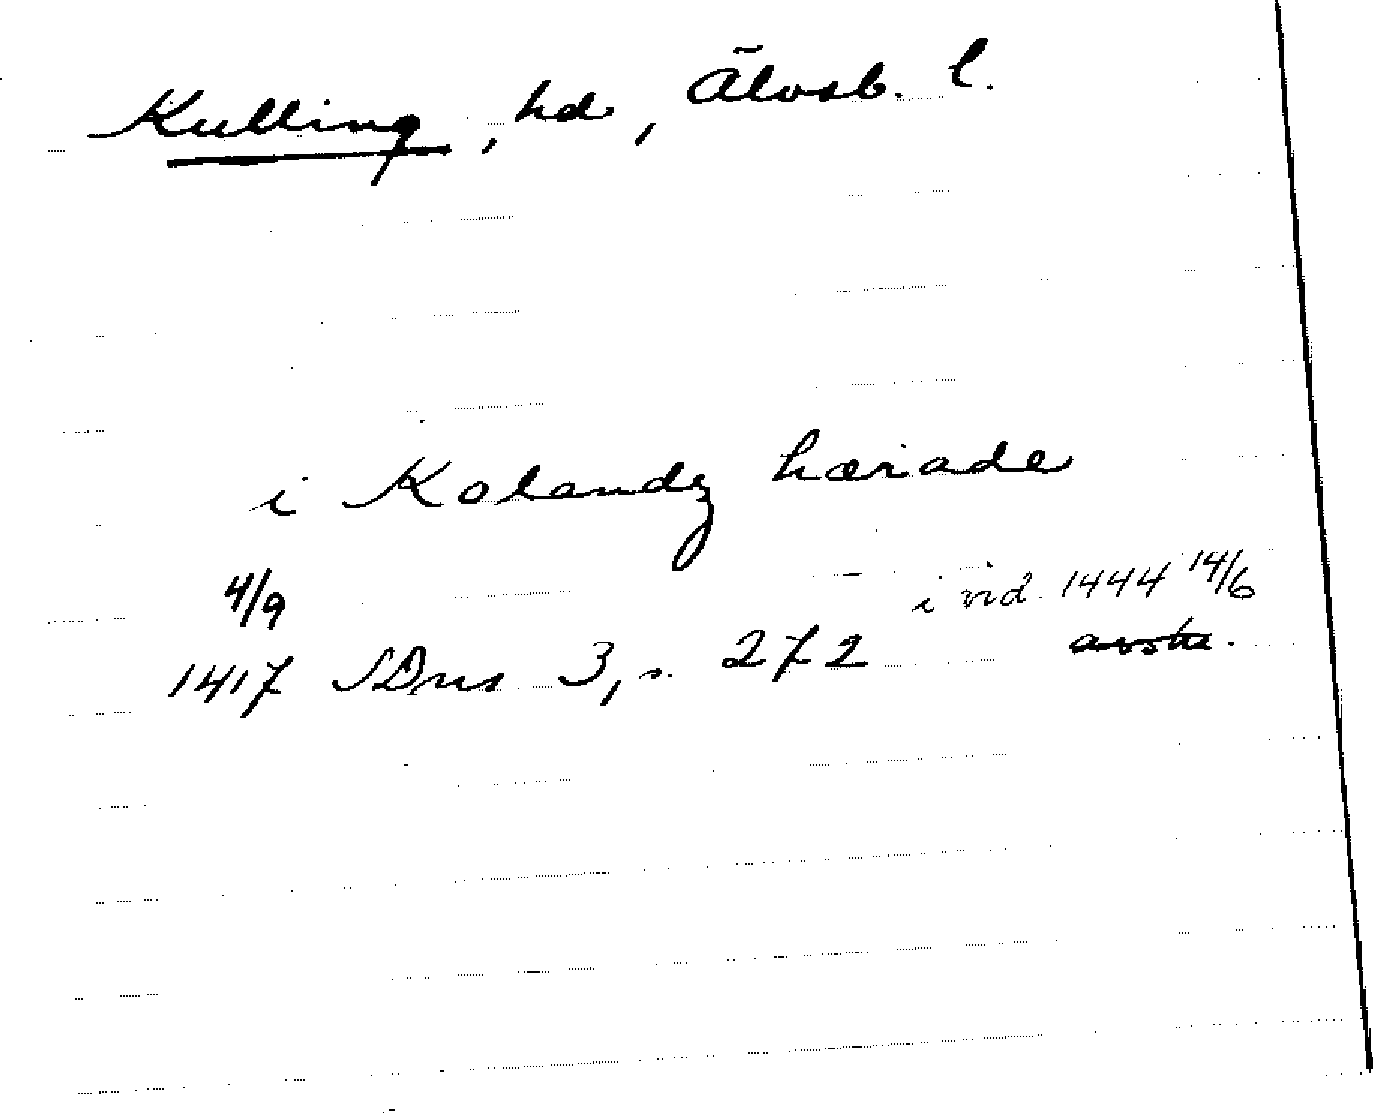 Kulling, hd, Älvsb. l.
i Kolandz hærade
4/9 i vid. 1444 14/6
1417 SDns 3, s. 272 avskr.